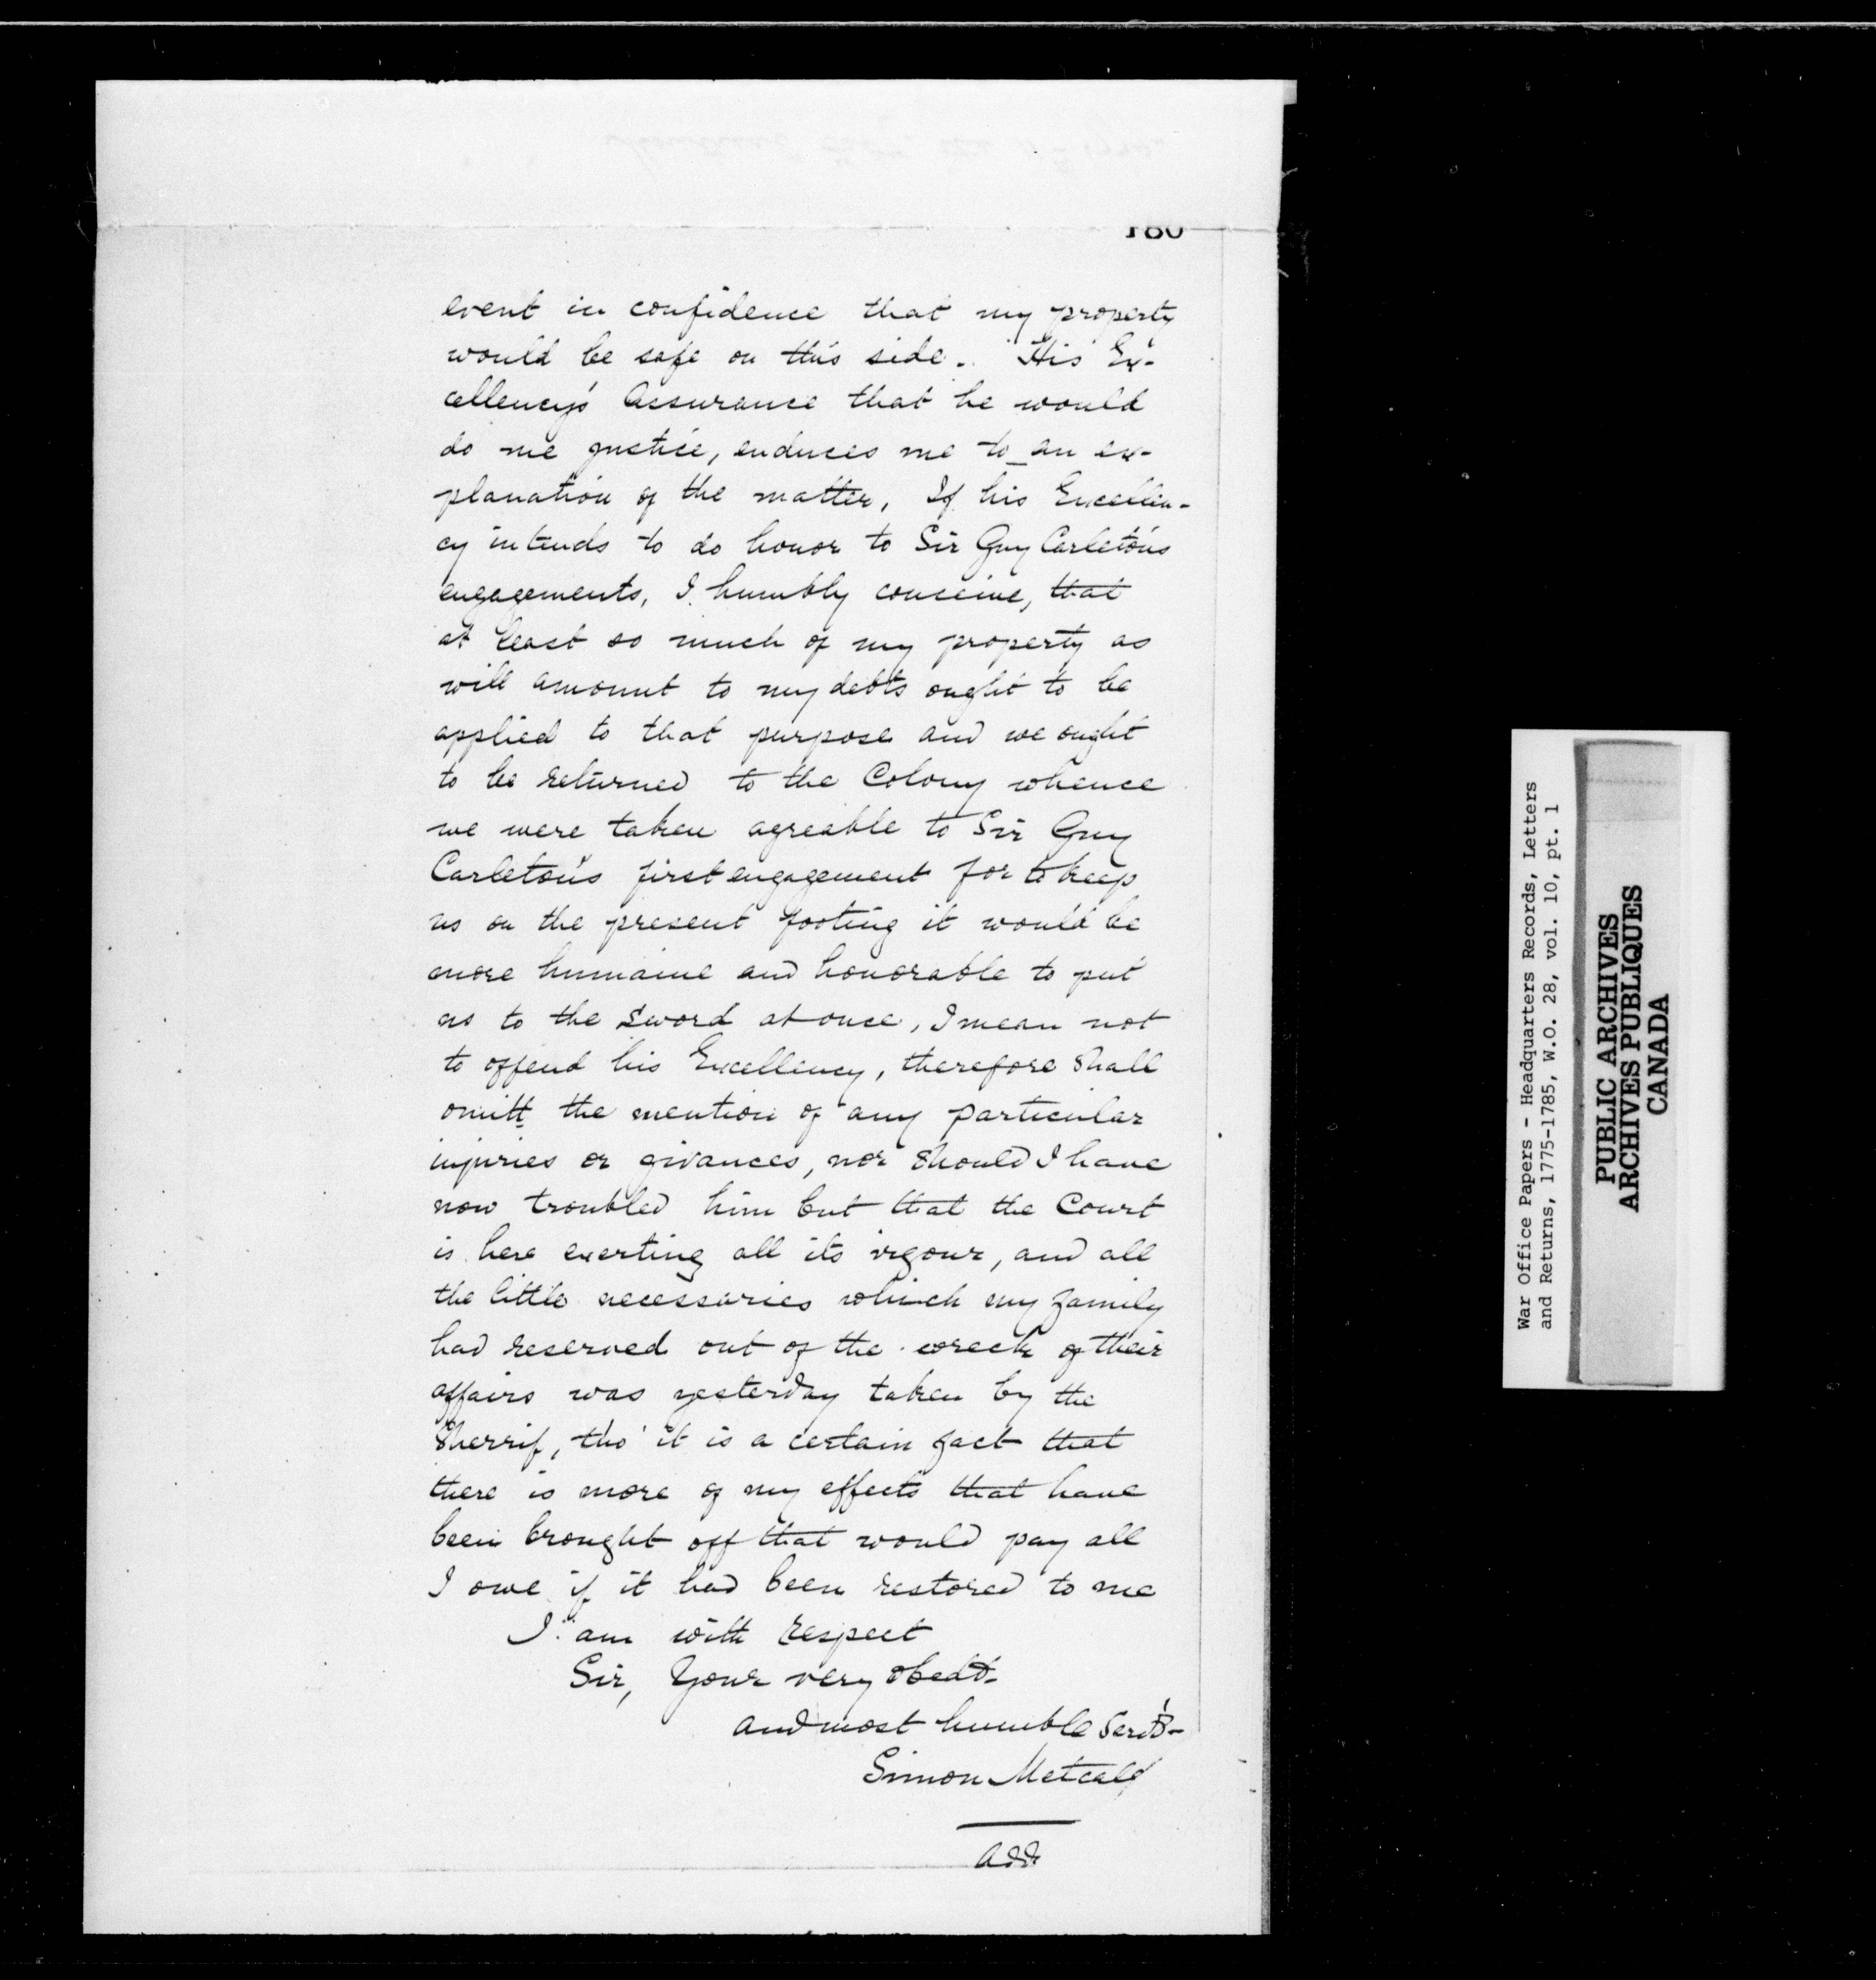 180
event in confidence that my property
would be safe on this side. His Ex-
cellency's Assurance that he would
do me justice, enduces me to an ex-
planation of the matter, If his Excellen-
cy intends to do honor to Sir Guy Carleton's
engagements, I humbly conceive, that
at least so much of my property as
will amount to my debts ought to be
applied to that purpose and we ought
to be returned to the Colony whence
we were taken agreable to Sir Guy
Carleton's first engagement for to keep
us on the present footing it would be
more humaine and honorable to put
us to the Sword at once, I mean not
to offend his Excellency, therefore shall
omitt the mention of any particular
injuries or givances, nor should I have
now troubled him but that the Court
is here exerting all its vigour, and all
the little necessaries which my family
had reserved out of the wreck of their
affairs was yesterday taken by the
Sherrif, tho' it is a certain fact that
there is more of my effects that have
been brought off that would pay all
I owe if it had been restored to me
I am with respect
Sir, Your very obedt-
and most humble Servt-
Simon Metcalf
Add
War Office Papers - Headquarters Records, Letters
and Returns, 1775-1785, W.O. 28, vol. 10, pt. 1
PUBLIC ARCHIVES
ARCHIVES PUBLIQUES
CANADA